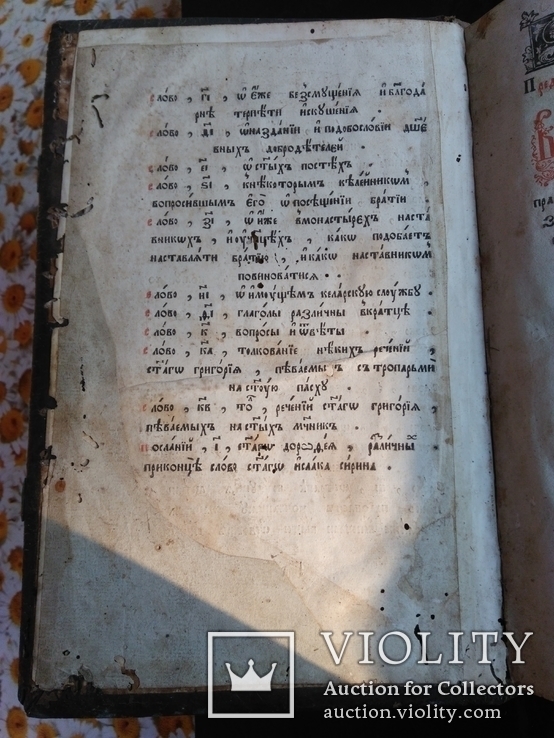 сло́во , г҃і , ѡ҆ є҆́же безсмꙋще́нїѧ и҆ бл҃года́
рнѣ терпѣ́ти и҆скꙋше́нїѧ .
сло́во , д҃і , ѡ҆ назда́нїи и҆ подобосло́вїи дш҃е́
вныхъ добродѣ́телей .
сло́во , є҃і , ѡ҆ ст҃ы́хъ посте́хъ .
сло́во , ѕ҃і , кнѣ́которымъ кѣле́йникѡмъ ,
вопроси́вшымъ є҆гѡ̀ ѡ҆ посѣще́нїи бра́тїи .
сло́во , з҃і , ѡ҆ и҆́же вмонастыре́хъ наста́
вникѡхъ , и҆ ᲂу҆ченицѣ́хъ , ка́кѡ подоба́етъ
наставлѧ́ти бра́тїю , и҆ ка́кѡ наста́вникѡмъ
повинова́тисѧ .
сло́во , и҃і , ѡ҆ и҆мꙋ́щемъ кела́рскꙋю слꙋ́жбꙋ .
сло́во , ѳ҃і , глаго́лы разли́чны вкра́тцѣ .
сло́во , к҃ , вопро́сы и҆ ѿвѣ́ты .
сло́во , к҃а , толкова́нїе нѣ́кихъ рече́нїй ,
ст҃а́гѡ григо́рїѧ , пѣва́емыхъ с тропарьмѝ
на ст҃ꙋ́ю па́схꙋ .
сло́во , к҃в , то́гѡ , рече́нїй ст҃а́гѡ григо́рїѧ ,
пѣва́емыхъ на ст҃ы́хъ мч҃никъ .
посла́нїй , і҃ , ст҃а́гѡ дорѡѳе́ѧ , разли́чны
приконцѣ̀ сло́во ст҃а́гѡ и҆саа́ка си́рина .
Пред
пра
VIOLITY
Auction for Collectors
auction.violity.com